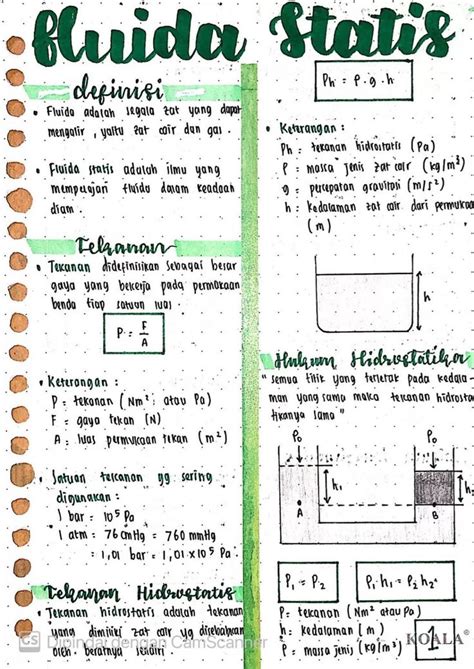 fluida statis
definisi
• Fluida adalah segala zat yang dapat
mengalir, yaitu zat cair dan gas.
• Fluida statis adalah ilmu yang
mempelajari fluida dalam keadaan
diam.
Tekanan
• Tekanan didefinisikan sebagai besar
gaya yang bekerja pada permukaan
benda tiap satuan luas.
P = F/A
• Keterangan :
P = tekanan (Nm² atau Pa)
F = gaya tekan (N)
A = luas permukaan tekan (m²)
• Satuan tekanan yg sering
digunakan :
1 bar = 10⁵ Pa
1 atm = 76 cmHg = 760 mmHg
= 1,01 bar = 1,01 x 10⁵ Pa
Tekanan Hidrostatis
• Tekanan hidrostatis adalah tekanan
yang dimiliki zat cair yg disebabkan
oleh beratnya sendiri
Ph = ρ . g . h
• Keterangan :
Ph = tekanan hidrostatis (Pa)
ρ = massa jenis zat cair (kg/m³)
g = percepatan gravitasi (m/s²)
h = kedalaman zat cair dari permukaan
(m)
h
Hukum Hidrostatika
"semua titik yang terletak pada kedala-
man yang sama maka tekanan hidrosta
tikanya sama"
Po
Po
h₁
h₂
A
B
P₁ = P₂
ρ₁.h₁ = ρ₂ h₂
P = tekanan (Nm² atau Pa)
h = kedalaman (m)
ρ = massa jenis (kg/m
KOALA
1
CS Dipindai dengan CamScanner